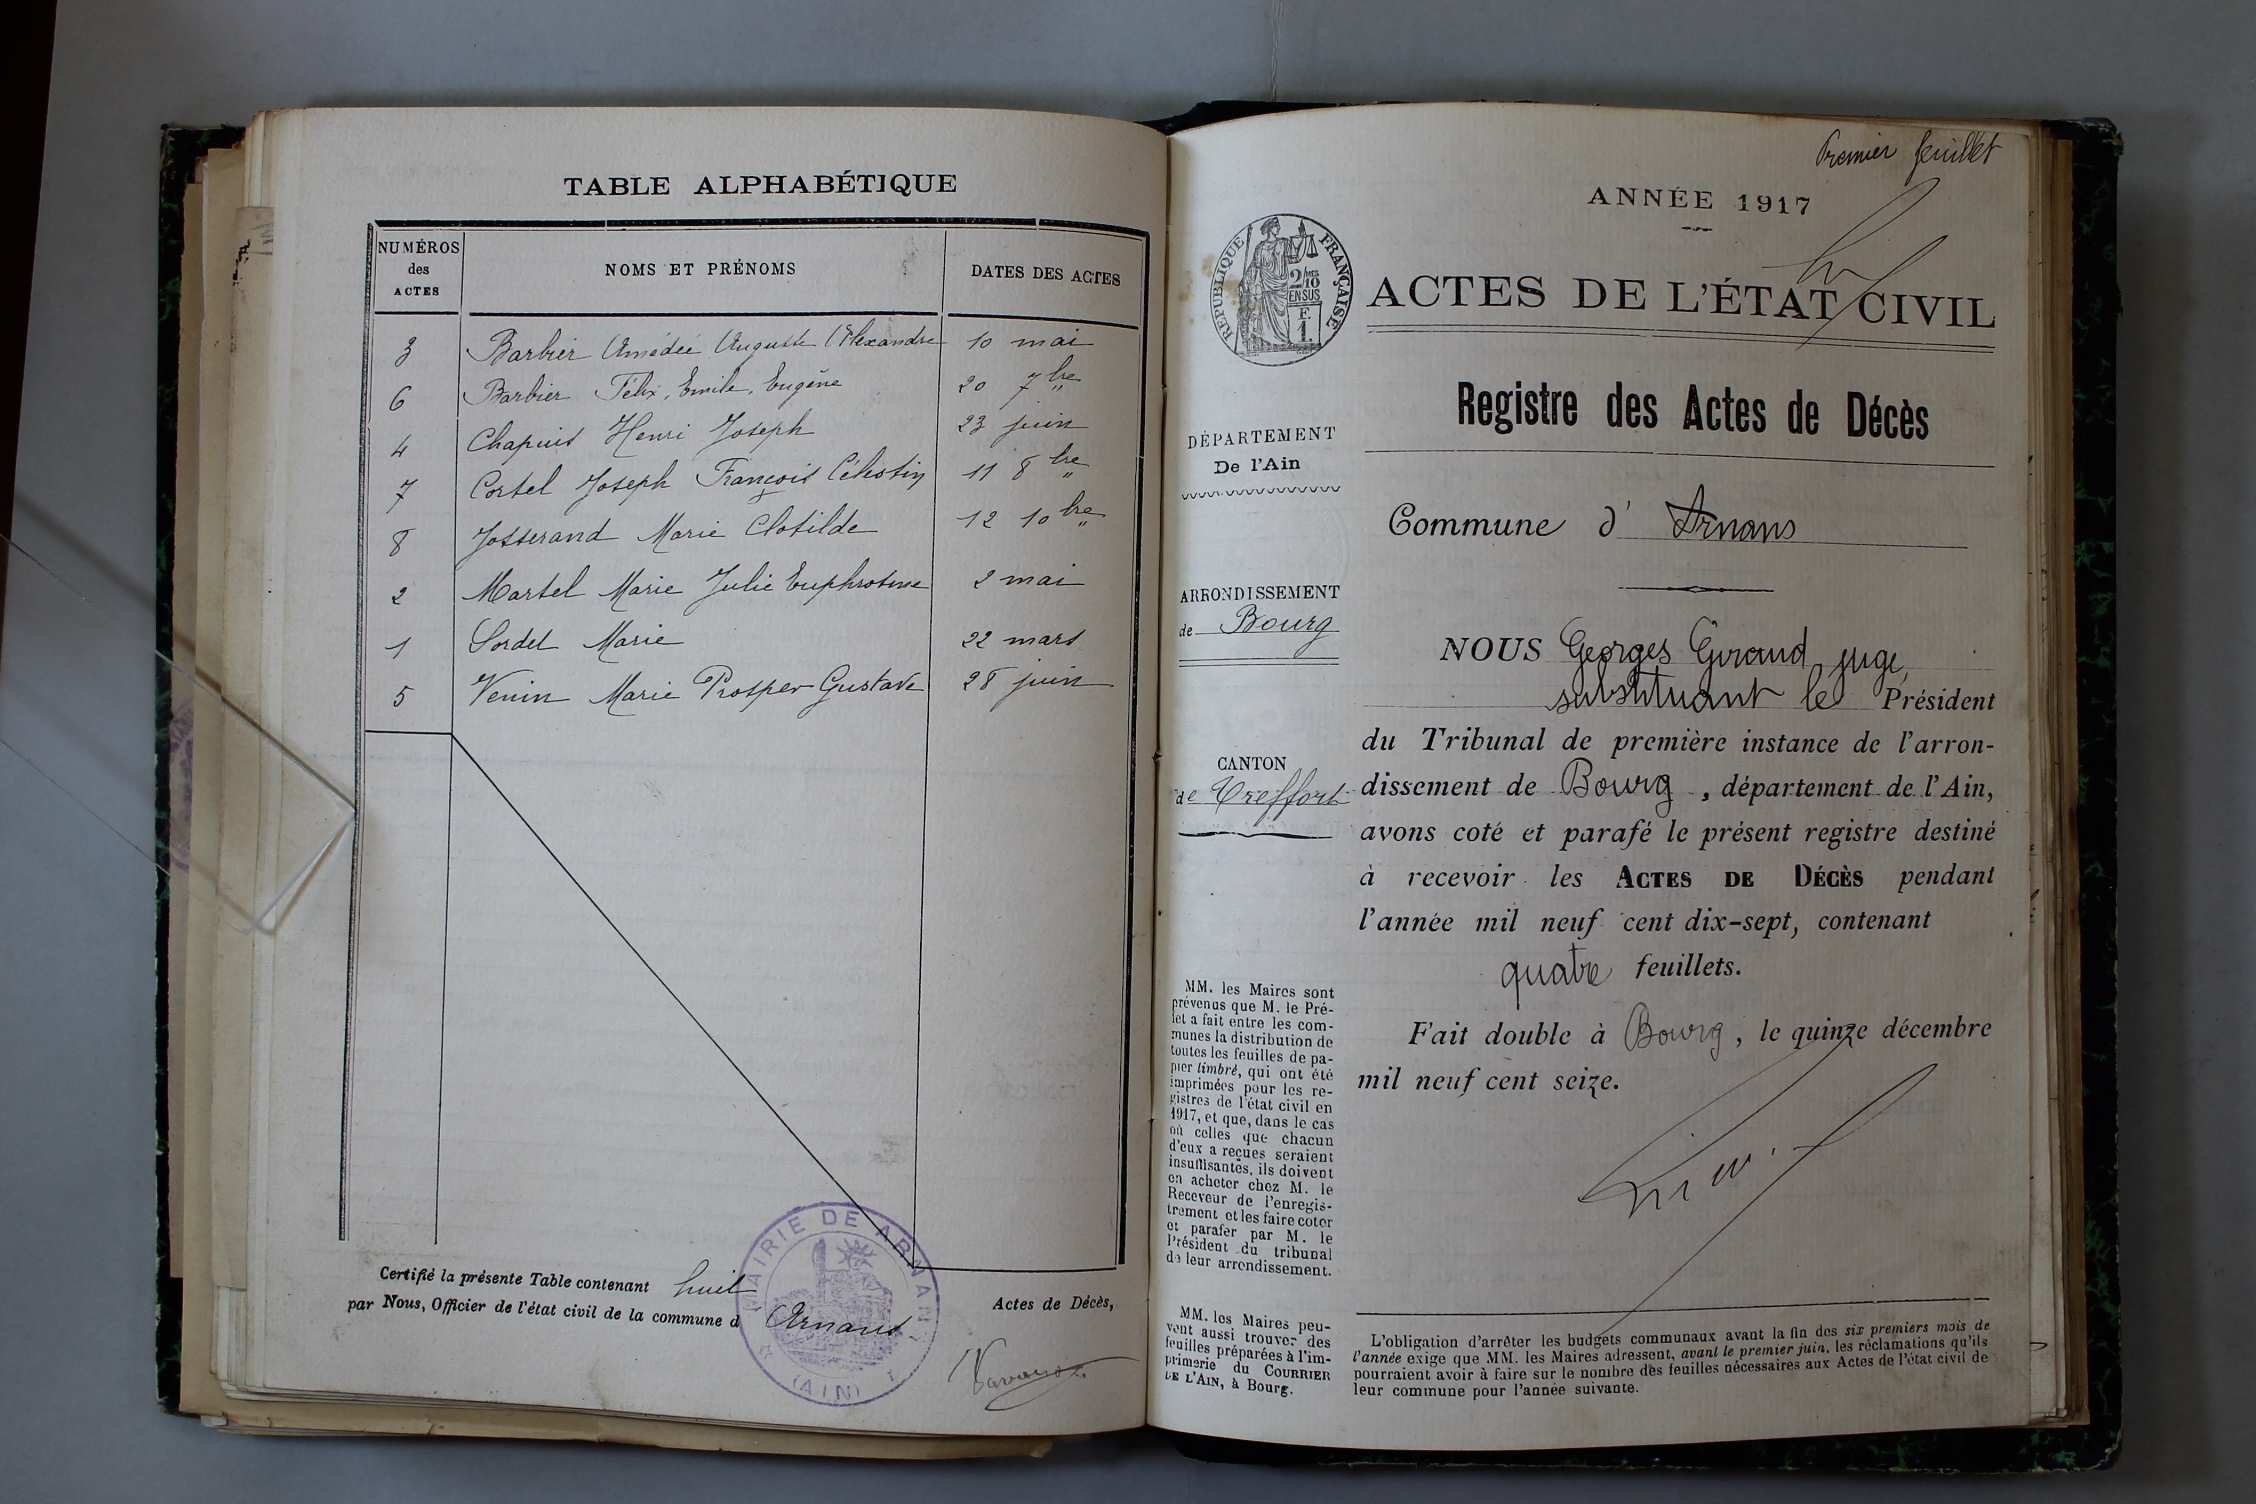 TABLE ALPHABÉTIQUE
NUMÉROS
des
ACTES
NOMS ET PRÉNOMS
DATES DES ACTES
3 Barbier Amédée Auguste Alexandre 10 mai
6 Barbier Félix, Emile, Eugène 20 7bre
4 Chapuis Henri Joseph 23 juin
7 Cortel Joseph François Célestin 11 8bre
8 Josserand Marie Clotilde 12 10bre
2 Martel Marie Julie Euphrosine 2 mai
1 Sordel Marie 22 mars
5 Venin Marie Prosper Gustave 28 juin
Certifié la présente Table contenant huit Actes de Décès,
par Nous, Officier de l'état civil de la commune d Arnans
MAIRIE DE ARNANS
(AIN)
Premier feuillet
ANNÉE 1917
RÉPUBLIQUE FRANÇAISE
2/10
EN SUS
F.
1.
ACTES DE L'ÉTAT CIVIL
Registre des Actes de Décès
DÉPARTEMENT
De l'Ain
Commune d' Arnans
ARRONDISSEMENT
de Bourg
CANTON
de Treffort
NOUS Georges Giraud juge,
substituant le Président
du Tribunal de première instance de l'arron-
dissement de Bourg, département de l'Ain,
avons coté et parafé le présent registre destiné
à recevoir les ACTES DE DÉCÈS pendant
l'année mil neuf cent dix-sept, contenant
quatre feuillets.
Fait double à Bourg, le quinze décembre
mil neuf cent seize.
MM. les Maires sont
prévenus que M. le Pré-
fet a fait entre les com-
munes la distribution de
toutes les feuilles de pa-
pier timbré, qui ont été
imprimées pour les re-
gistres de l'état civil en
1917, et que, dans le cas
où celles que chacun
d'eux a reçues seraient
insuffisantes, ils doivent
en acheter chez M. le
Receveur de l'enregis-
trement et les faire coter
et parafer par M. le
Président du tribunal
de leur arrondissement.
MM. les Maires peu-
vent aussi trouver des
feuilles préparées à l'im-
primerie du COURRIER
DE L'AIN, à Bourg.
L'obligation d'arrêter les budgets communaux avant la fin des six premiers mois de
l'année exige que MM. les Maires adressent, avant le premier juin, les réclamations qu'ils
pourraient avoir à faire sur le nombre des feuilles nécessaires aux Actes de l'état civil de
leur commune pour l'année suivante.